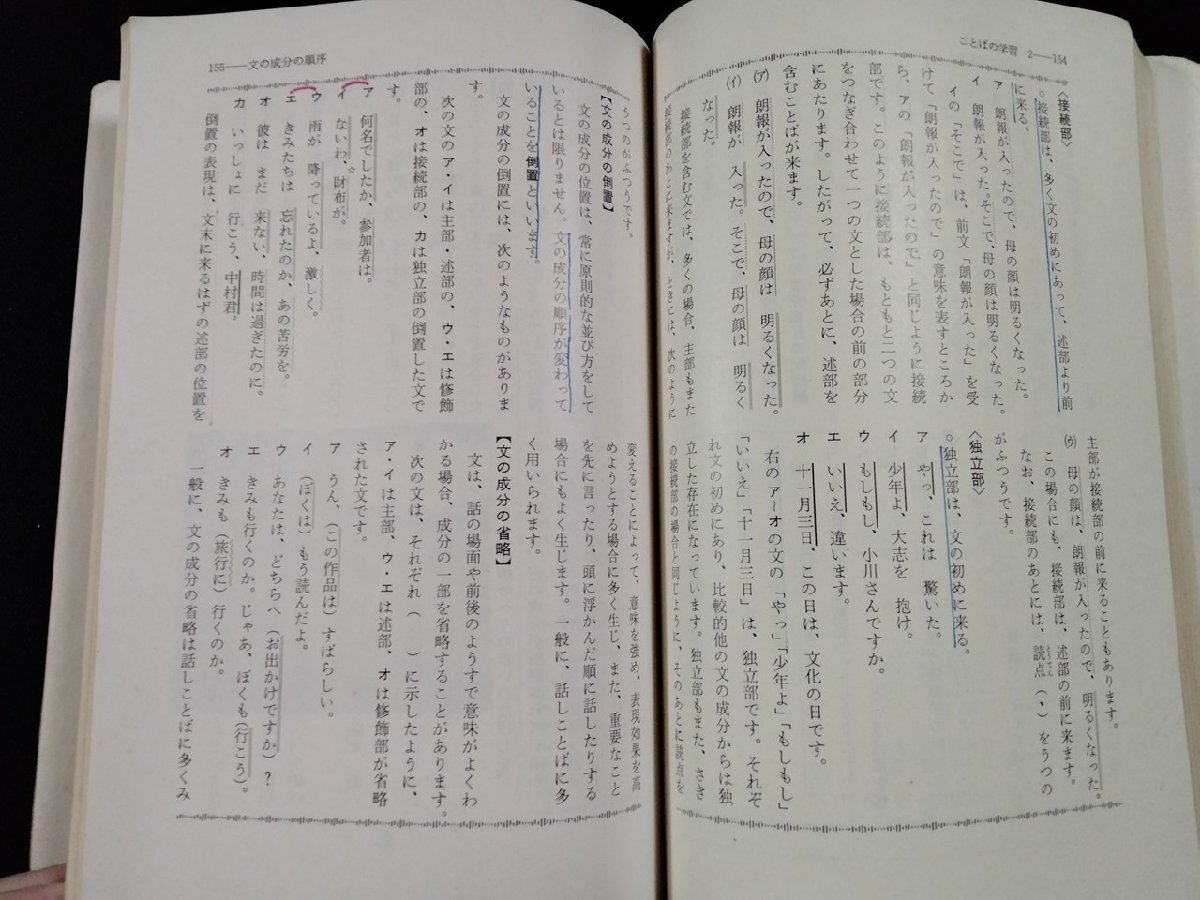 ことばの学習 2──154
〈接続部〉
○接続部は、多く文の初めにあって、述部より前
に来る。
ア 朗報が入ったので、母の顔は明るくなった。
イ 朗報が入った。そこで、母の顔は明るくなった。
イの「そこで」は、前文「朗報が入った」を受
けて「朗報が入ったので」の意味を表すところか
ら、アの「朗報が入ったので」と同じように接続
部です。このように接続部は、もともと二つの文
をつなぎ合わせて一つの文とした場合の前の部分
にあたります。したがって、必ずあとに、述部を
含むことばが来ます。
(ア) 朗報が入ったので、母の顔は 明るくなった。
(イ) 朗報が 入った。そこで、母の顔は 明るく
なった。
接続部を含む文では、多くの場合、主部もまた
接続部のあとに来ますが、ときには、次のように
主部が接続部の前に来ることもあります。
(ウ) 母の顔は、朗報が入ったので、明るくなった。
この場合にも、接続部は、述部の前に来ます。
なお、接続部のあとには、読点(、)をうつの
がふつうです。
〈独立部〉
○独立部は、文の初めに来る。
ア やっ、これは 驚いた。
イ 少年よ、大志を 抱け。
ウ もしもし、小川さんですか。
エ いいえ、違います。
オ 十一月三日、この日は、文化の日です。
右のア〜オの文の「やっ」「少年よ」「もしもし」
「いいえ」「十一月三日」は、独立部です。それぞ
れ文の初めにあり、比較的他の文の成分からは独
立した存在になっています。独立部もまた、さき
の接続部の場合と同じように、そのあとに読点を
155──文の成分の順序
うつのがふつうです。
【文の成分の倒置】
文の成分の位置は、常に原則的な並び方をして
いるとは限りません。文の成分の順序が変わって
いることを倒置といいます。
文の成分の倒置には、次のようなものがありま
す。
次の文のア・イは主部・述部の、ウ・エは修飾
部の、オは接続部の、カは独立部の倒置した文で
す。
ア 何名でしたか、参加者は。
イ ないわ、財布が。
ウ 雨が 降っているよ、激しく。
エ きみたちは 忘れたのか、あの苦労を。
オ 彼は まだ 来ない、時間は過ぎたのに。
カ いっしょに 行こう、中村君。
倒置の表現は、文末に来るはずの述部の位置を
変えることによって、意味を強め、表現効果を高
めようとする場合に多く生じ、また、重要なこと
を先に言ったり、頭に浮かんだ順に話したりする
場合にもよく生じます。一般に、話しことばに多
く用いられます。
【文の成分の省略】
文は、話の場面や前後のようすで意味がよくわ
かる場合、成分の一部を省略することがあります。
次の文は、それぞれ( )に示したように、
ア・イは主部、ウ・エは述部、オは修飾部が省略
された文です。
ア うん、(この作品は)すばらしい。
イ (ぼくは)もう読んだよ。
ウ あなたは、どちらへ(お出かけですか)?
エ きみも行くのか。じゃあ、ぼくも(行こう)。
オ きみも(旅行に)行くのか。
一般に、文の成分の省略は話しことばに多くみ